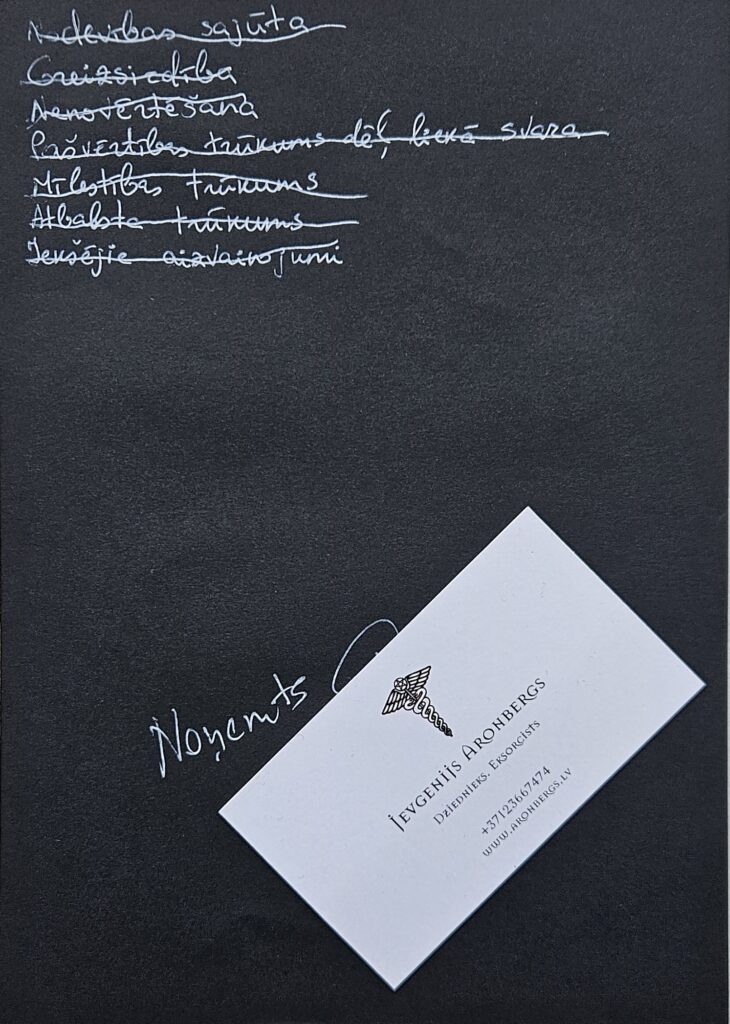 Nodevības sajūta
Greizsirdība
Nenovērtēšana
Pašvērtības trūkums dēļ liekā svara
Mīlestības trūkums
Atbalsta trūkums
Iekšējie aizvainojumi
Noņemts
Jevgenijs Aronbergs
Dziednieks. Eksorcists
+37123667474
www.aronbergs.lv